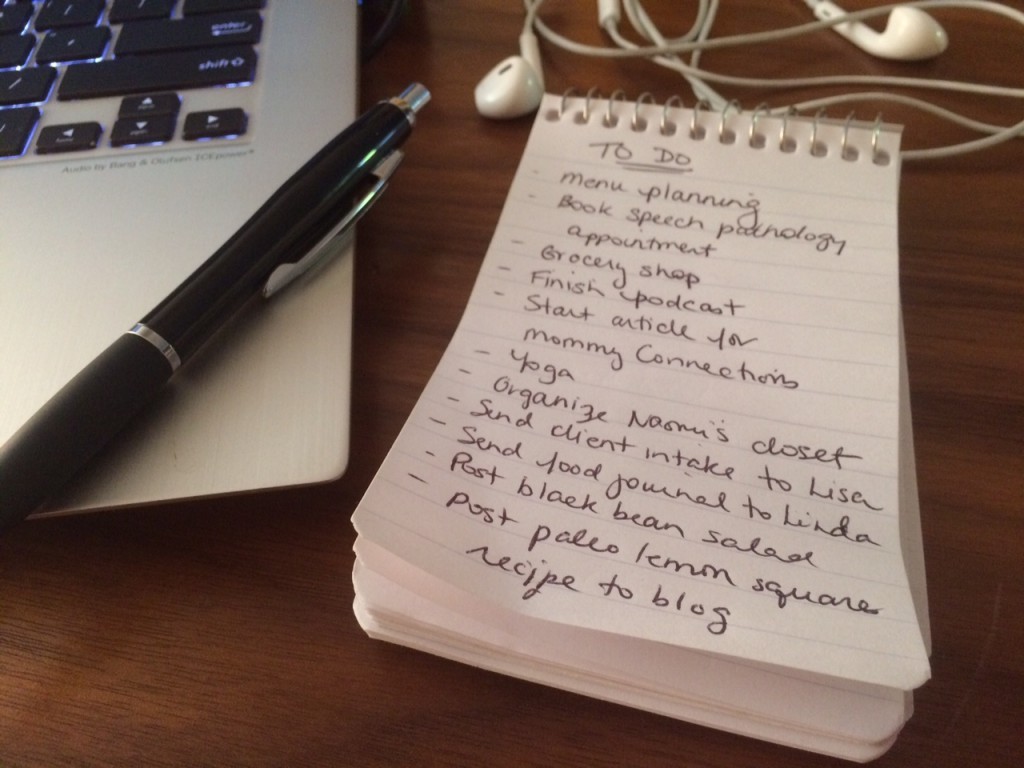 enter
shift
Audio by Bang & Olufsen ICEpower®
TO DO
- menu planning
- Book speech pathology
appointment
- Grocery shop
- Finish podcast
- Start article for
mommy Connections
- Yoga
- Organize Naomi's closet
- Send client intake to Lisa
- Send food journal to Linda
- Post black bean salad
- Post paleo lemon square
recipe to blog